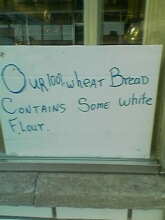 Our 100% wheat Bread
Contains Some white
Flour.